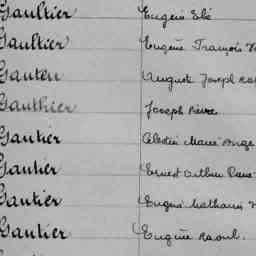 Gaultier Eugène Elé
Gaultier Eugène François
Gauteu Auguste Joseph
Gauthier Joseph Pierre
Gautier Célestin Marie Ange
Gautier Ernest Arthur
Gautier Eugène Mathurin
Gautier Eugène Raoul.